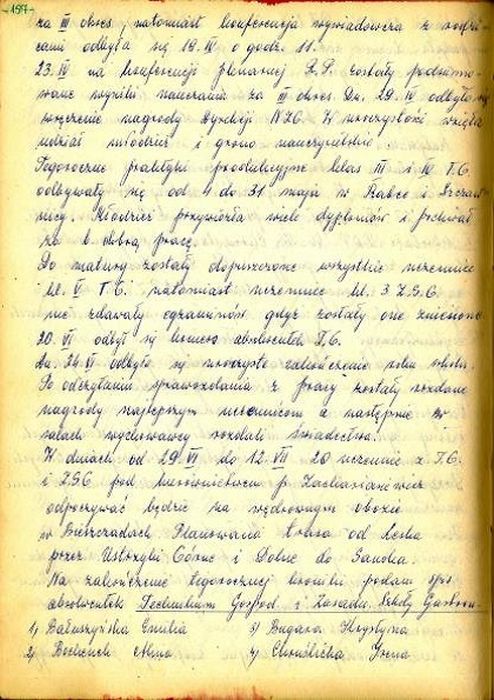 -187-
za III okres natomiast konferencja wywiadowcza z rodzi-
cami odbyła się 19.IV o godz. 11.
23.IV na konferencji plenarnej R.P. zostały podsumo-
wane wyniki nauczania za III okres. Dn. 29.IV odbyło się
wręczenie nagrody Dyrekcji NZG. W uroczystości wzięła
udział młodzież i grono nauczycielskie.
Tegoroczne praktyki produkcyjne klas III i IV T.G.
odbywały się od 4 do 31 maja w Rabce i Szczaw-
nicy. Młodzież przywiozła wiele dyplomów i pochwał
za b. dobrą pracę.
Do matury zostały dopuszczone wszystkie uczennice
kl. V T.G. natomiast uczennice kl. 3 Z.S.G.
nie zdawały egzaminów gdyż zostały one zniesione
20.VI odbył się komers absolwentek T.G.
Dn. 26.VI odbyło się uroczyste zakończenie roku szkoln.
Po odczytaniu sprawozdania z pracy zostały rozdane
nagrody najlepszym uczennicom a następnie w
salach wychowawcy rozdali świadectwa.
W dniach od 29.VI do 12.VII 20 uczennic z T.G.
i ZSG pod kierownictwem p. Zachariasiewicz
odpoczywać będzie na wędrownym obozie
w Bieszczadach. Planowana trasa od Leska
przez Ustrzyki Górne i Dolne do Sanoka
Na zakończenie tegorocznej kroniki podam spis
absolwentek Technikum Gospod. i Zasadn. Szkoły Gastron.-
1) Bałuszyńska Emilia 3) Bugara Krystyna
2) Anna 4) Irena